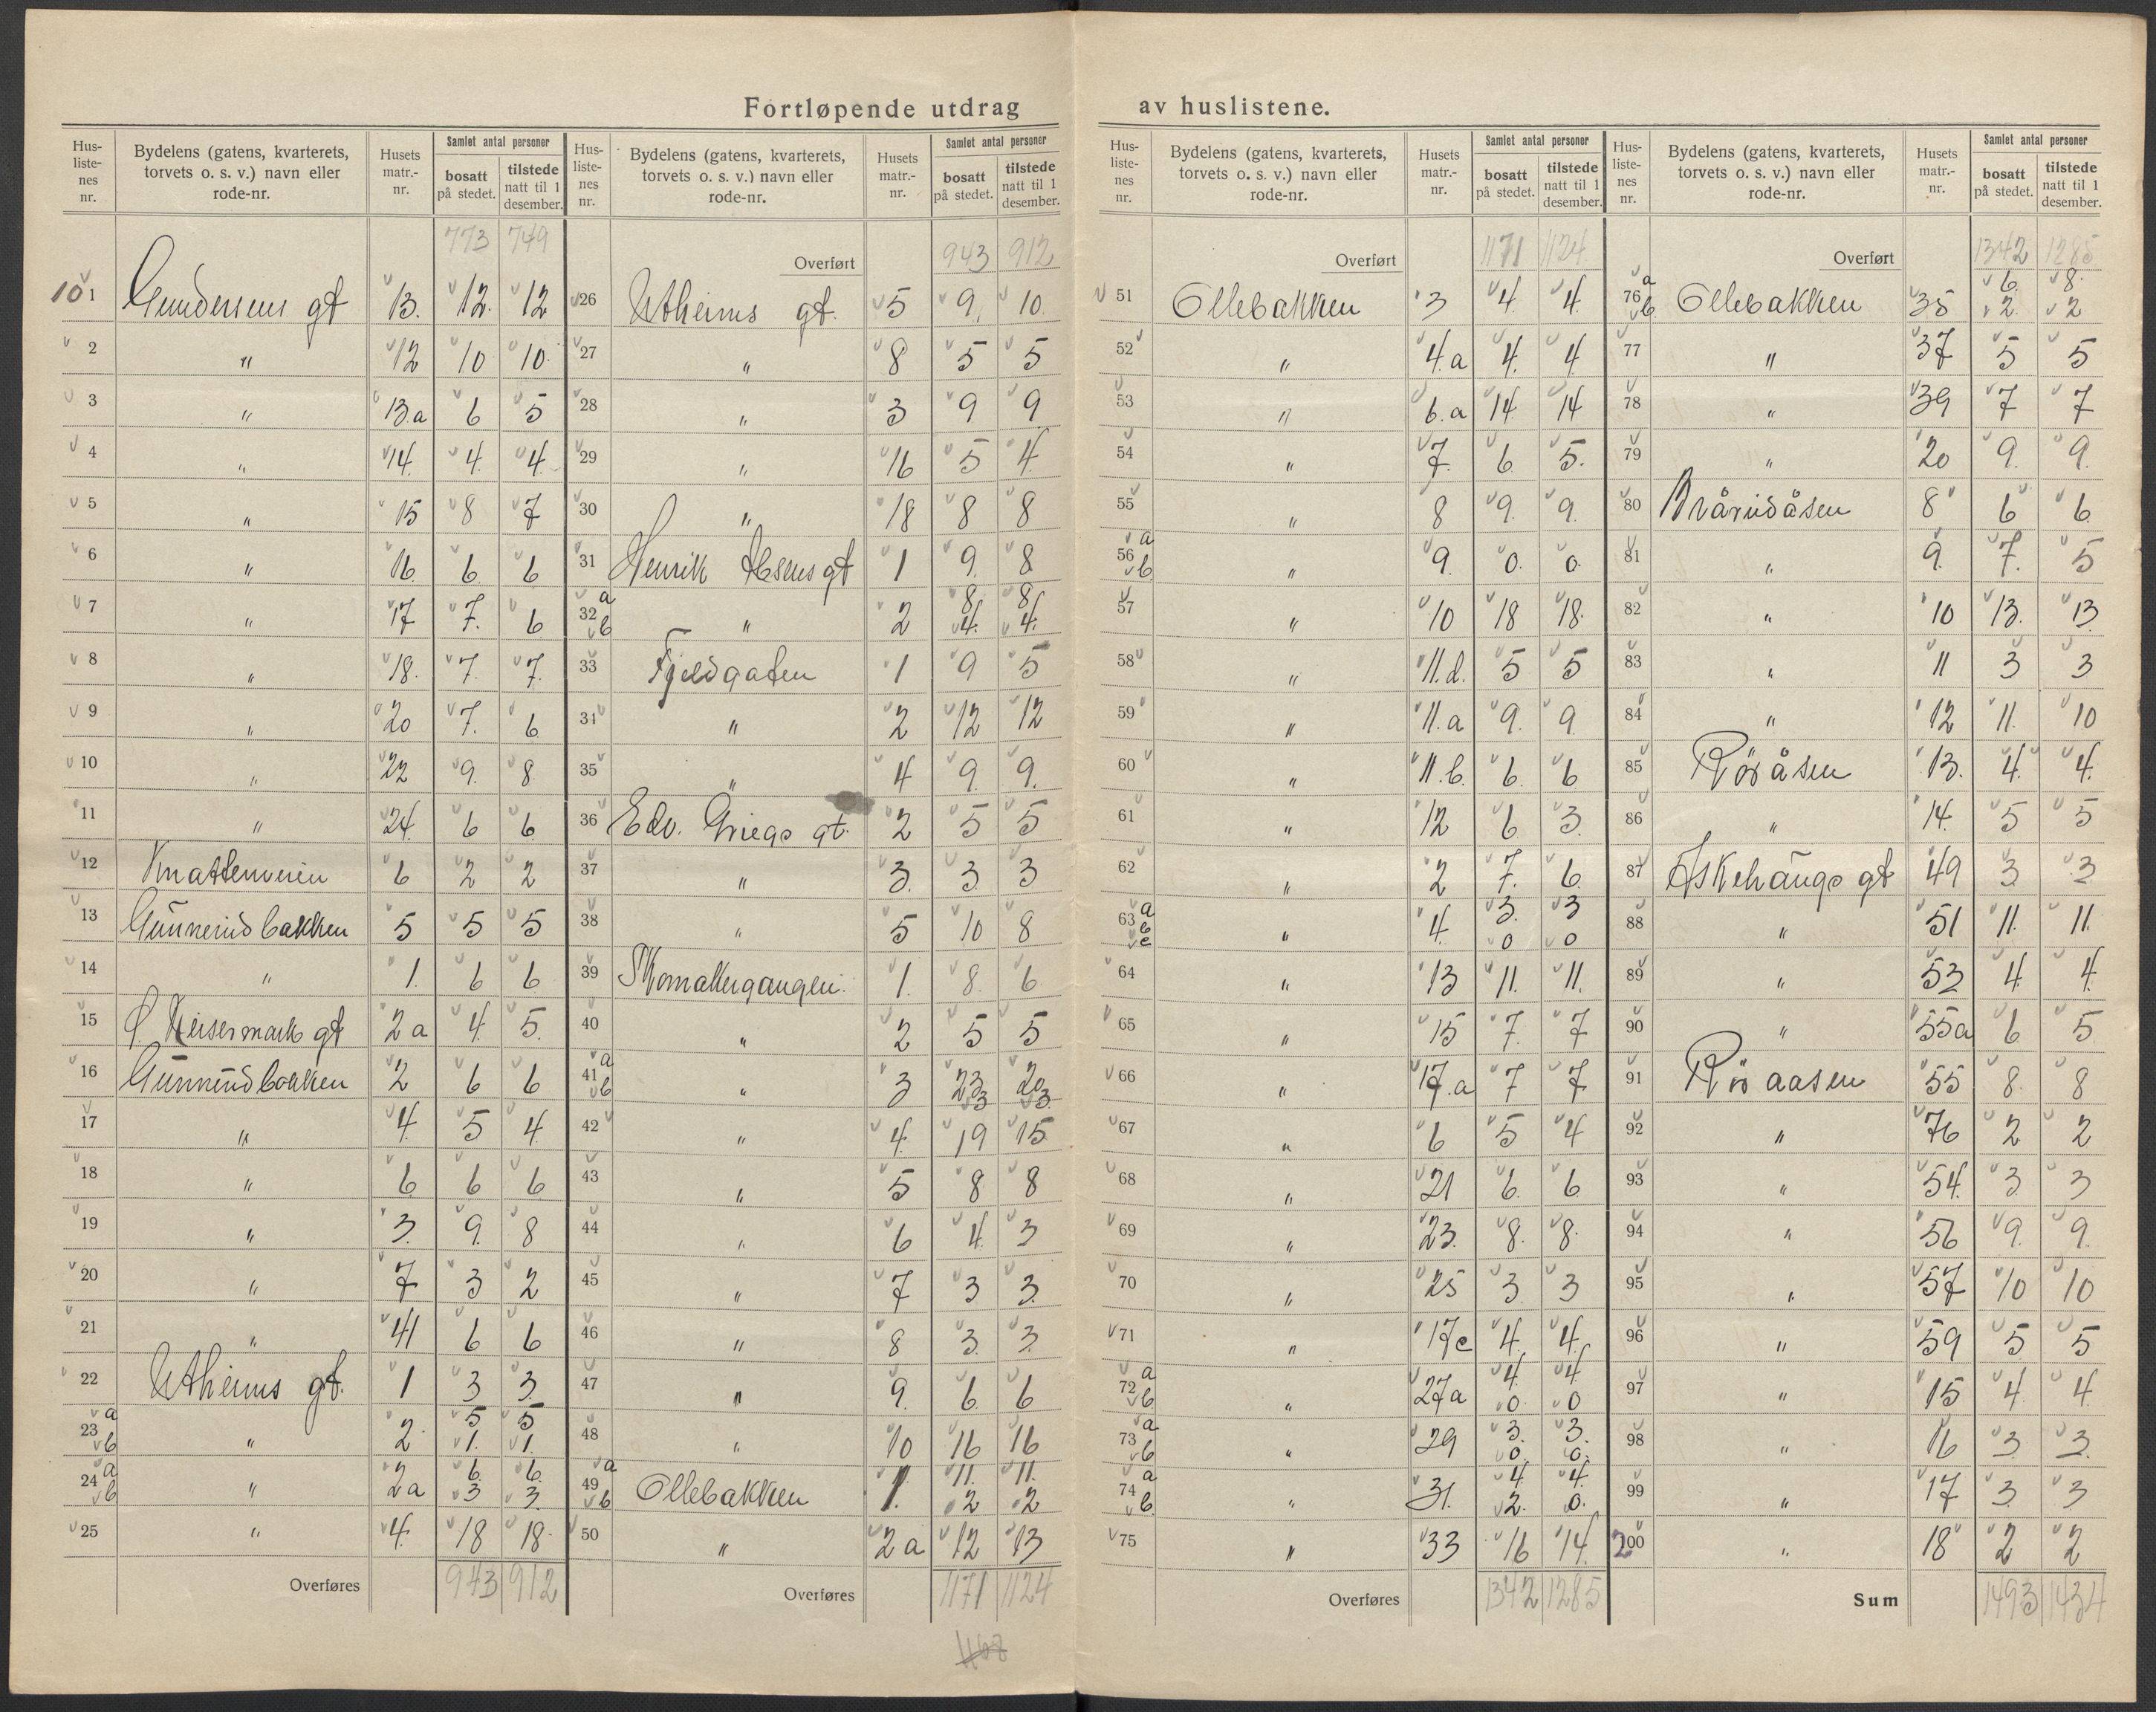 Fortløpende utdrag av huslistene.
Hus-listenes nr. | Bydelens (gatens, kvarterets, torvets o. s. v.) navn eller rode-nr. | Husets matr.-nr. | Samlet antal personer bosatt på stedet. | tilstede natt til 1 desember.
773 749
101 Gundersens gt 13. 12. 12
2 " 12 10 10
3 " 13.a 6 5
4 " 14. 4. 4.
5 " 15 8 7
6 " 16 6 6
7 " 17 7. 6
8 " 18. 7. 7.
9 " 20 7. 6
10 " 22 9. 8
11 " 24. 6 6
12 Knattenveien 6 2 2
13 Gunnerudbakken 5 5 5
14 " 1. 6 6
15 2a 4. 5.
16 Gunnerudbakken 2 6 6
17 " 4. 5 4
18 " 6 6 6
19 " 3. 9. 8
20 " 7 3 2
21 " 41 6 6
22 Utheims gt. 1 3 3
23 a " 2 5 5
b 1. 1.
24 a " 2a 6. 6.
b 3 3.
25 " 4. 18 18
Overføres 943 912
Hus-listenes nr. | Bydelens (gatens, kvarterets, torvets o. s. v.) navn eller rode-nr. | Husets matr.-nr. | Samlet antal personer bosatt på stedet. | tilstede natt til 1 desember.
Overført 943 912
26 Utheims gt. 5 9. 10.
27 " 8 5 5
28 " 3 9. 9
29 " 16 5 4.
30 " 18 8 8
31 Henrik Ibsens gt 1 9. 8
32 a " 2 8. 8.
b 4. 4.
33 Fjeldgaten 1 9 5
34 " 2 12 12
35 " 4 9. 9.
36 Edv. Griegs gt. 2 5 5
37 " 3. 3. 3
38 " 5 10 8
39 Skomakergangen. 1. 8. 6
40 " 2 5 5
41 a " 3 23 20
b 3 3
42 " 4. 19 15
43 " 5 8 8
44 " 6 4. 3
45 " 7 3 3.
46 " 8 3. 3.
47 " 9. 6 6
48 " 10 16 16
49 a Ollebakken 1. 11. 11.
b 2 2
50 " 2a 12 13
Overføres 1171 1124
1168
Hus-listenes nr. | Bydelens (gatens, kvarterets, torvets o. s. v.) navn eller rode-nr. | Husets matr.-nr. | Samlet antal personer bosatt på stedet. | tilstede natt til 1 desember.
Overført 1171 1124
51 Ollebakken 3 4. 4.
52 " 4.a 4. 4
53 " 6.a 14. 14
54 " 7. 6 5.
55 " 8 9. 9.
56 a b " 9. 0. 0.
57 " 10 18 18.
58 " 11.d. 5 5
59 " 11.a 9. 9
60 " 11.b. 6. 6
61 " 12 6. 3.
62 " 2 7. 6.
63 a b c " 4. 3. 3
0 0
64 " 13 11. 11.
65 " 15 7. 7
66 " 17.a 7 7
67 " 6 5 4
68 " 21 6. 6
69 " 23. 8. 8.
70 " 25 3 3
71 " 17c 4. 4.
72 a " 27a 4. 4.
b 0. 0
73 a " 29 3. 3.
b 0. 0.
74 a " 31. 4. 4.
b 2. 0.
75 " 33 16 14.
Overføres 1342 1285
Hus-listenes nr. | Bydelens (gatens, kvarterets, torvets o. s. v.) navn eller rode-nr. | Husets matr.-nr. | Samlet antal personer bosatt på stedet. | tilstede natt til 1 desember.
Overført 1342 1285
76 a Ollebakken 35 6. 8.
b 2. 2
77 " 37 5 5
78 " 39 7 7
79 " 20 9. 9.
80 8 6 6
81 " 9. 7. 5
82 " 10 13. 13.
83 " 11 3 3
84 " 12 11. 10
85 Röråsen 13. 4. 4.
86 " 14. 5 5
87 Askehaugs gt 49 3 3
88 " 51 11. 11.
89 " 53 4. 4.
90 " 55a 6 5
91 Röraasen 55 8. 8
92 " 76 2 2
93 " 54. 3 3
94 " 56 9. 9.
95 " 57 10 10
96 " 59 5 5
97 " 15 4. 4.
98 " 16 3 3
99 " 17 3. 3
200 " 18 2 2
Sum 1493 1434